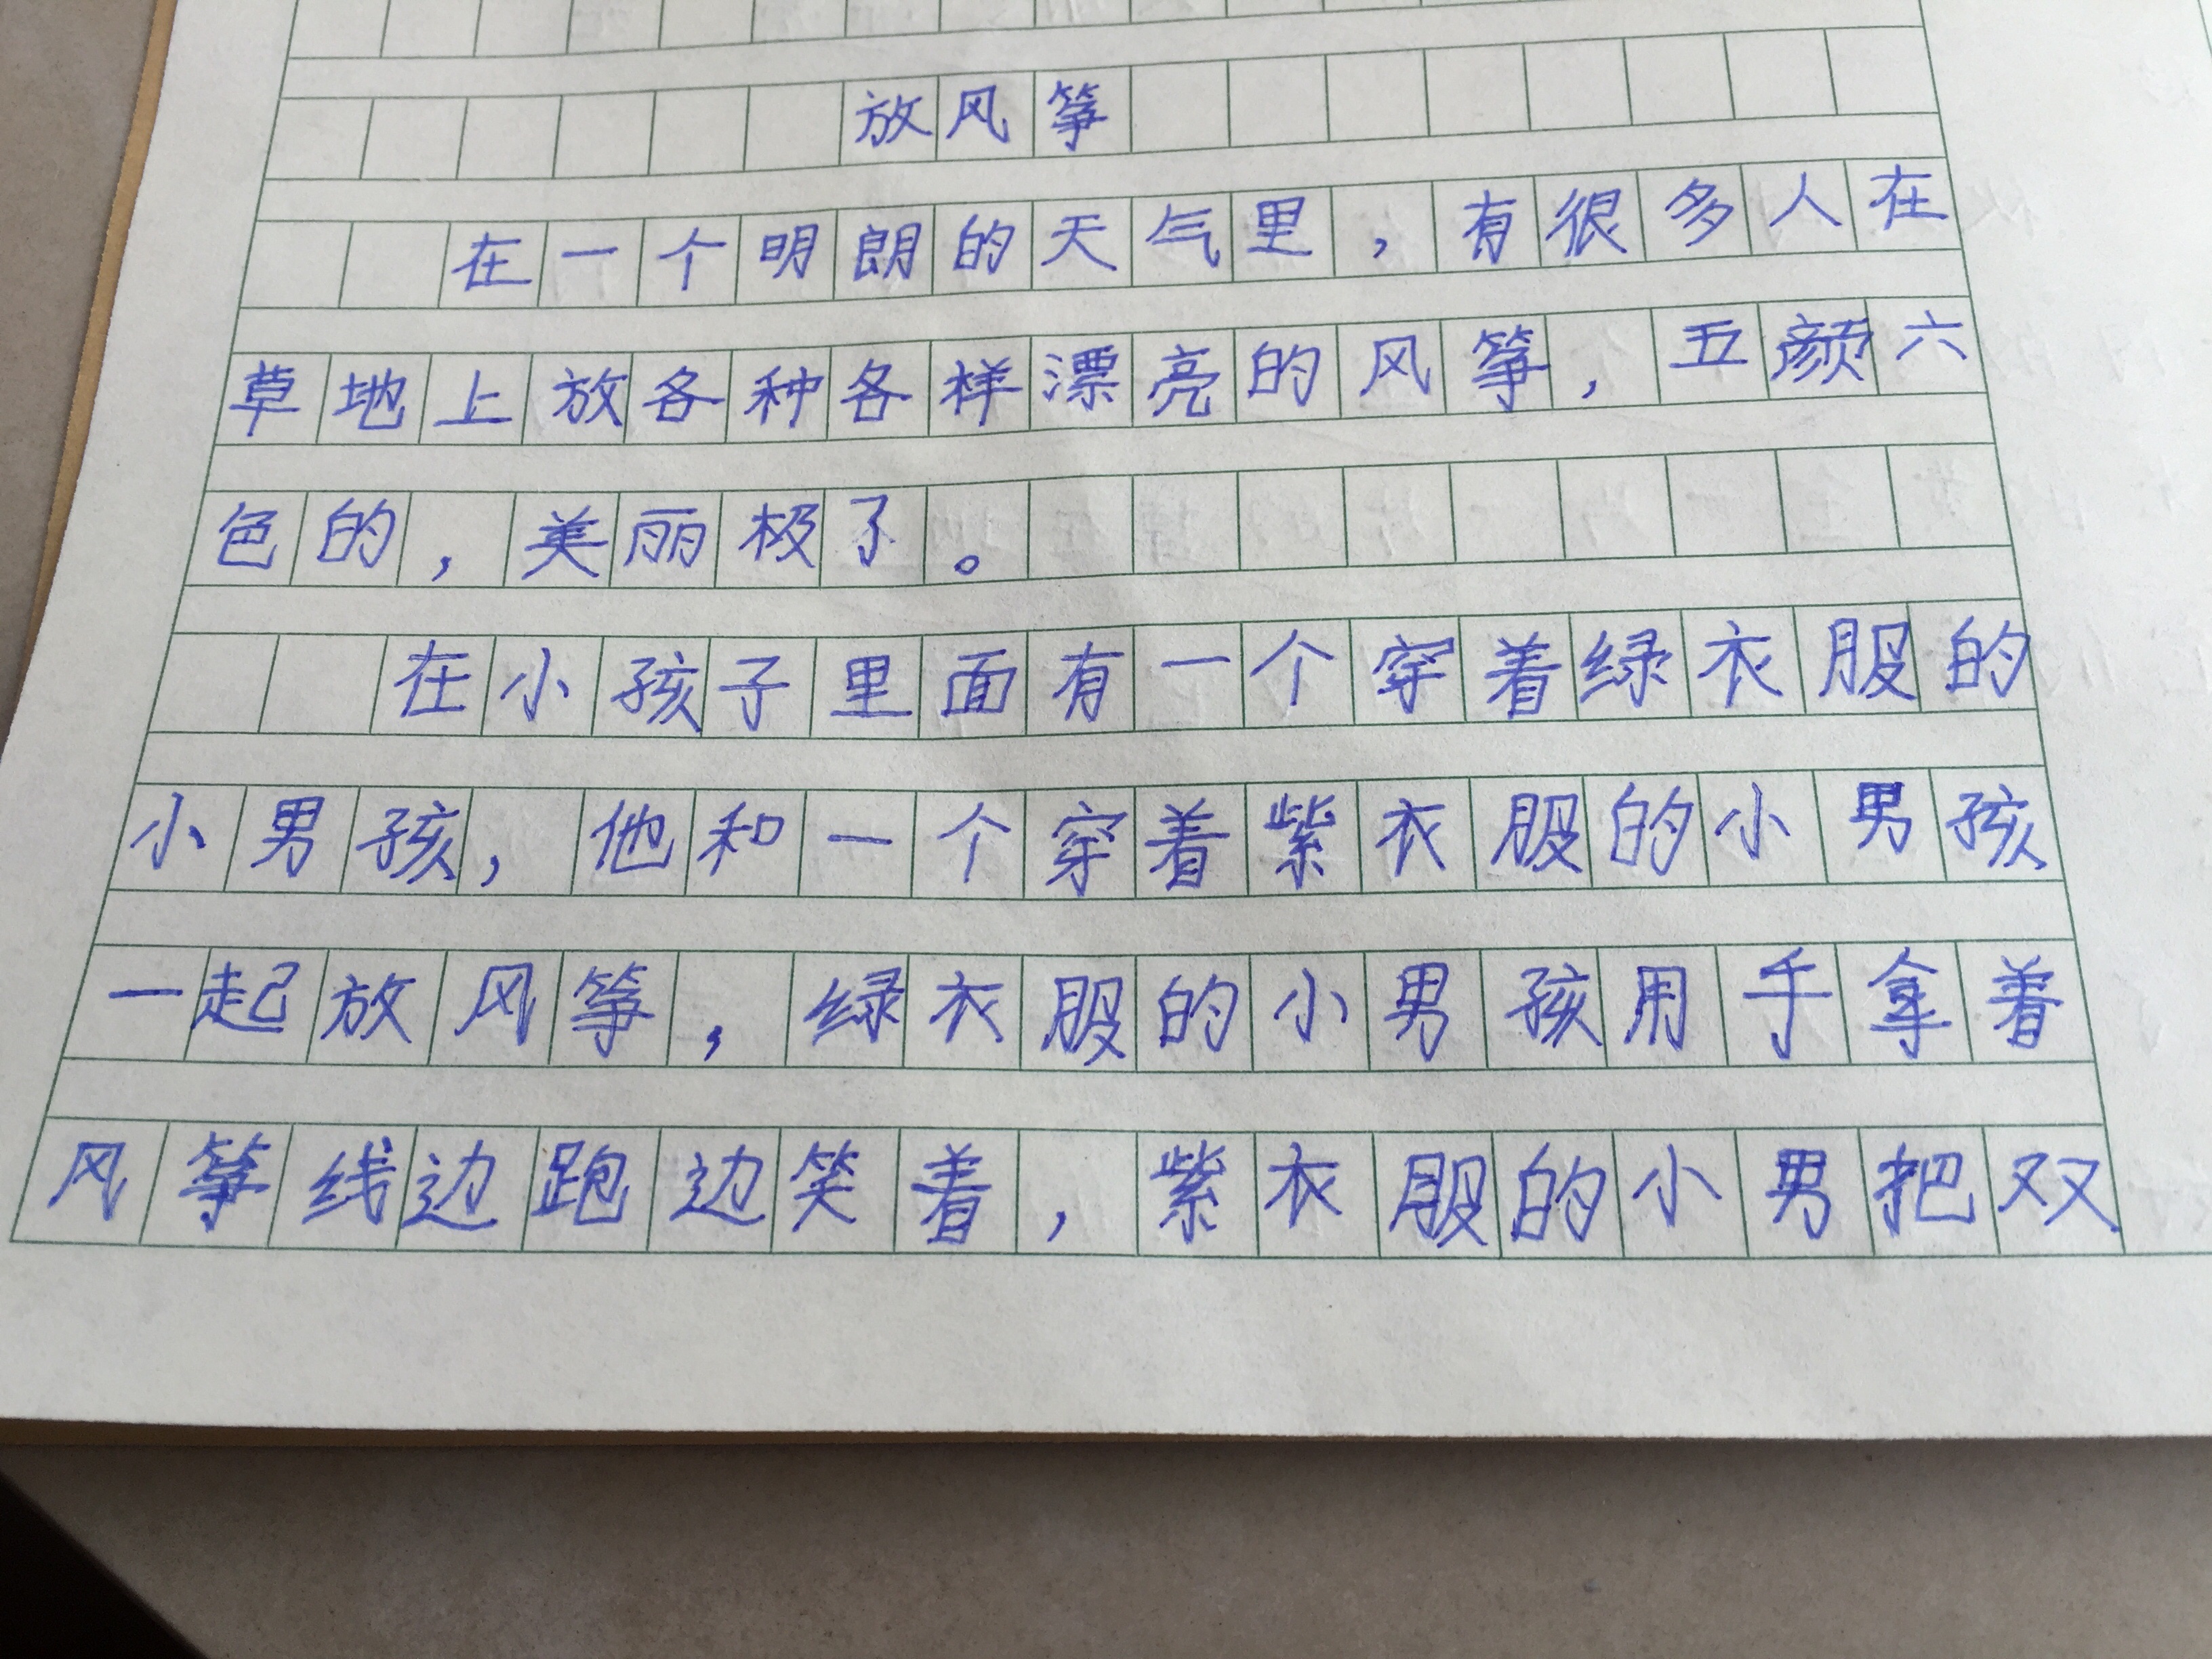 放风筝
在一个明朗的天气里，有很多人在
草地上放各种各样漂亮的风筝，五颜六
色的，美丽极了。
在小孩子里面有一个穿着绿衣服的
小男孩，他和一个穿着紫衣服的小男孩
一起放风筝，绿衣服的小男孩用手拿着
风筝线边跑边笑着，紫衣服的小男把双